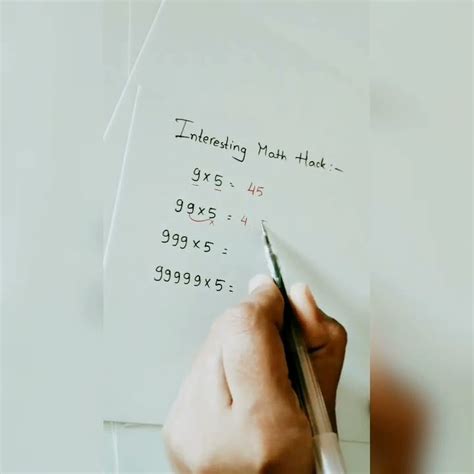 Interesting Math Hack:-
9x5 = 45
99x5 = 4
999x5 =
99999x5 =